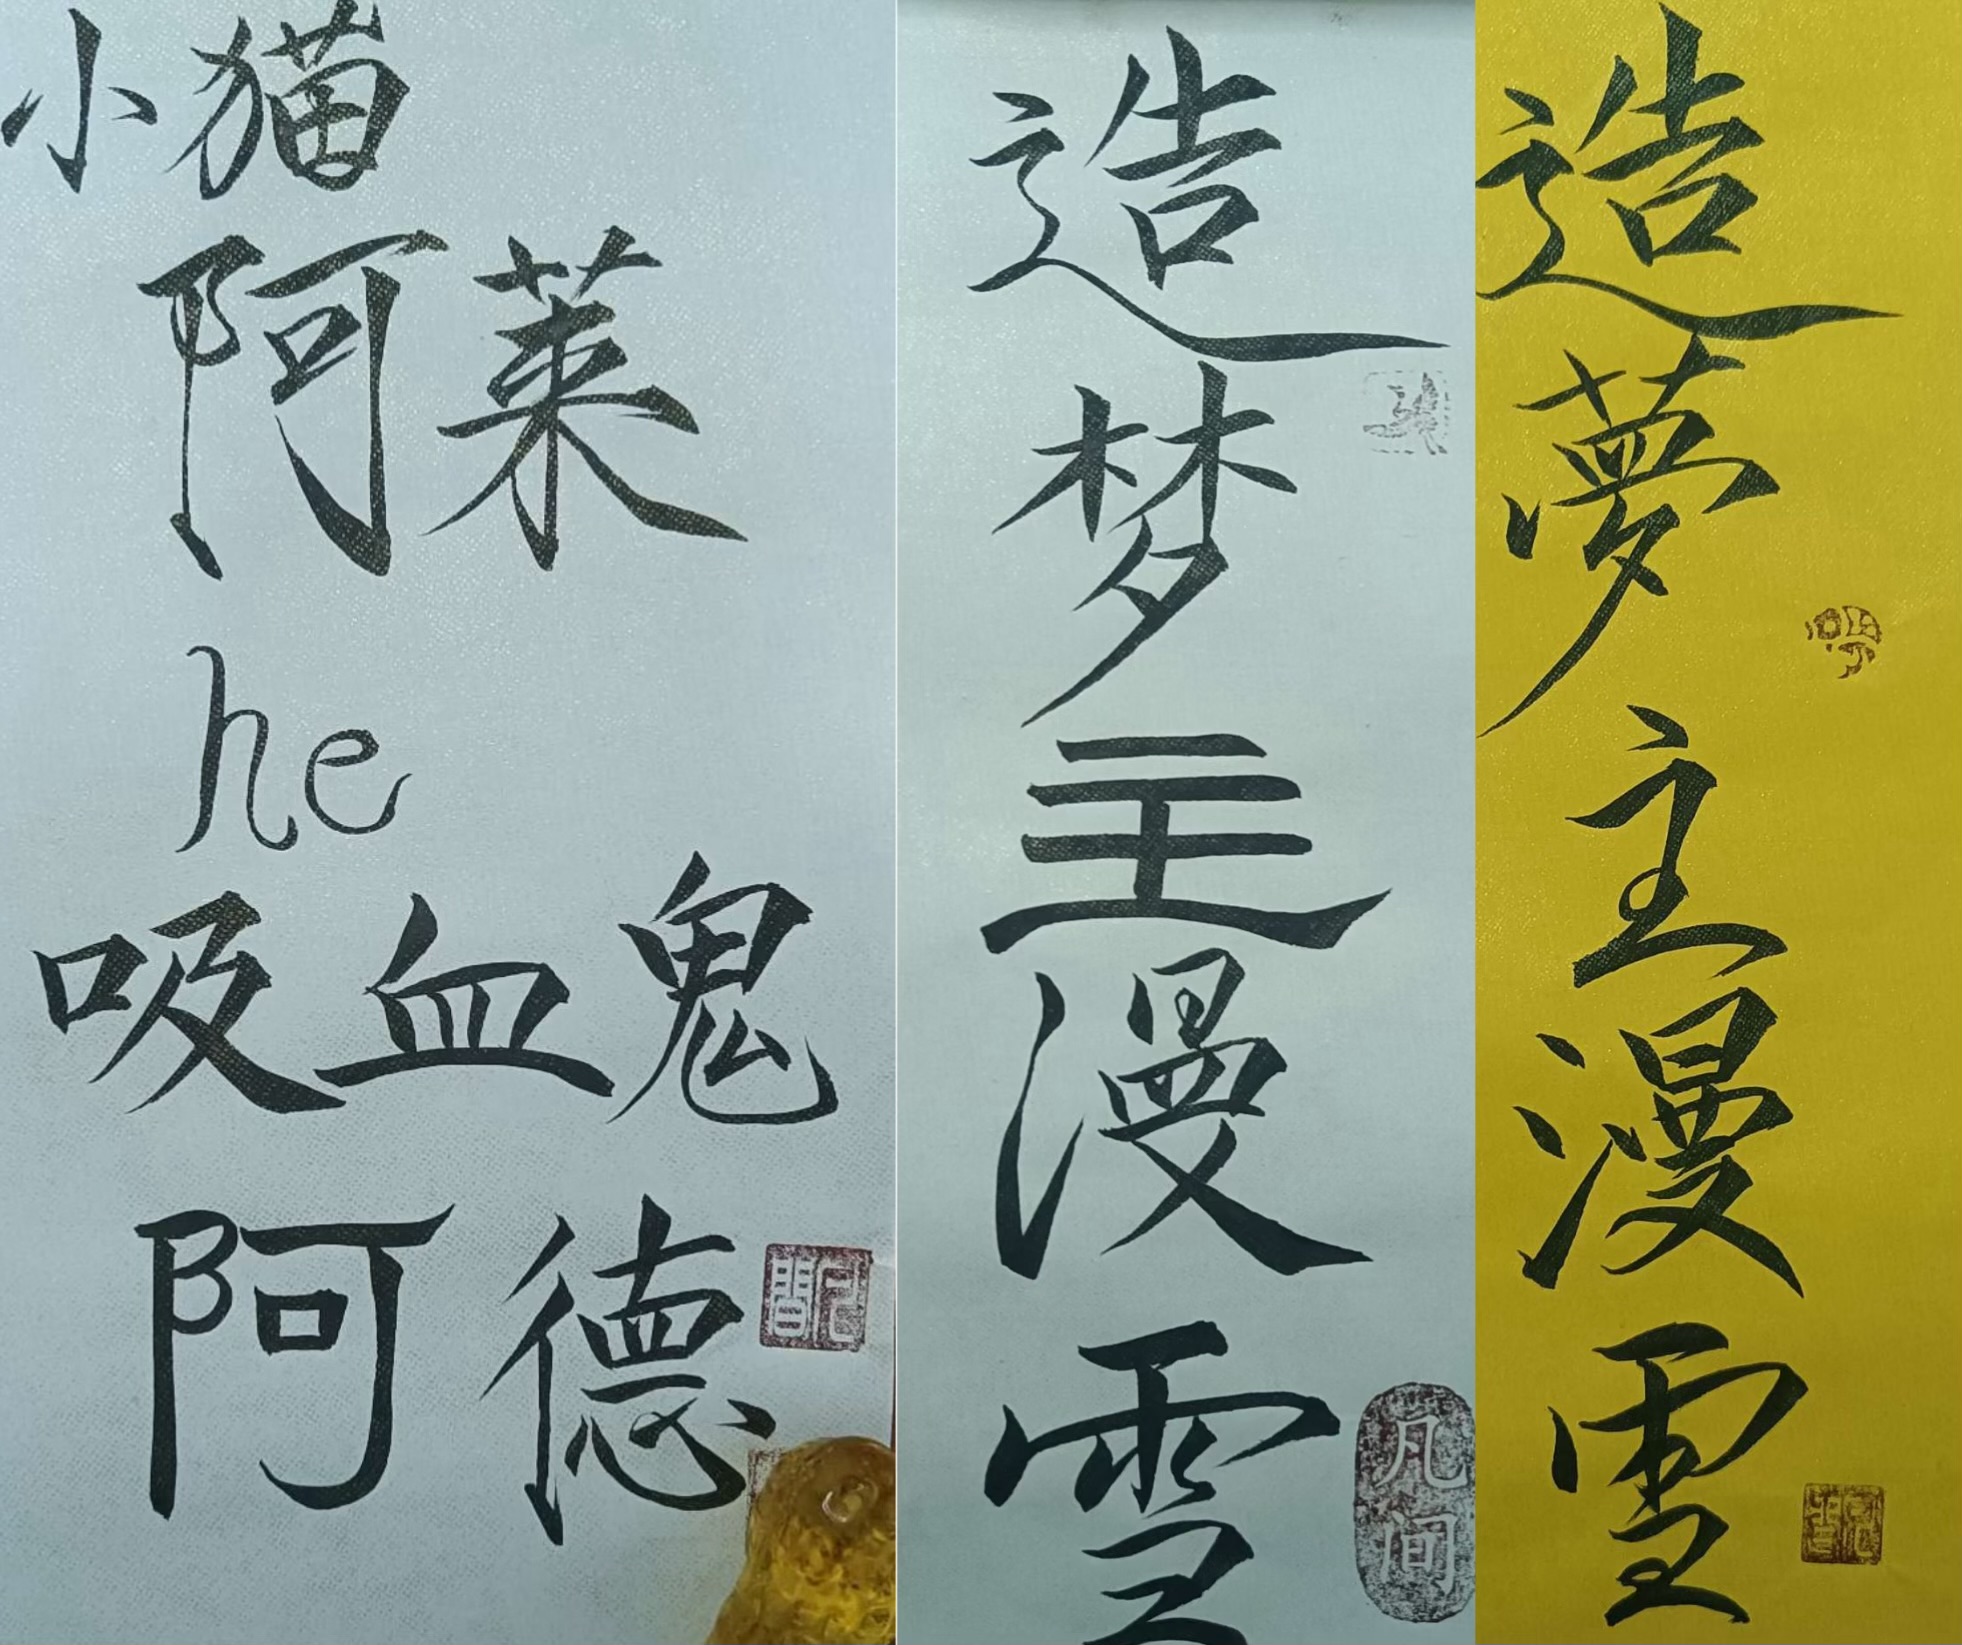 小猫
阿莱
he
吸血鬼
阿德
造梦主漫雪
凡间
造夢主漫雪